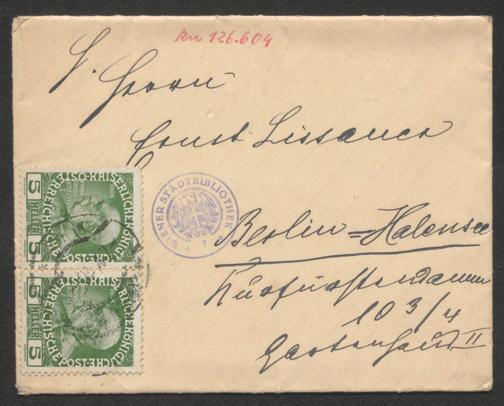 AN 126.604
S. Herrn
Ernst Lissauer
WIENER STADTBIBLIOTHEK
Berlin=Halensee
Kurfürstendamm
103/4
Gartenhaus II
KAISERLICHE KÖNIGLICHE ÖSTERREICHISCHE POST
5 HELLER 5
KAISERLICHE KÖNIGLICHE ÖSTERREICHISCHE POST
5 HELLER 5